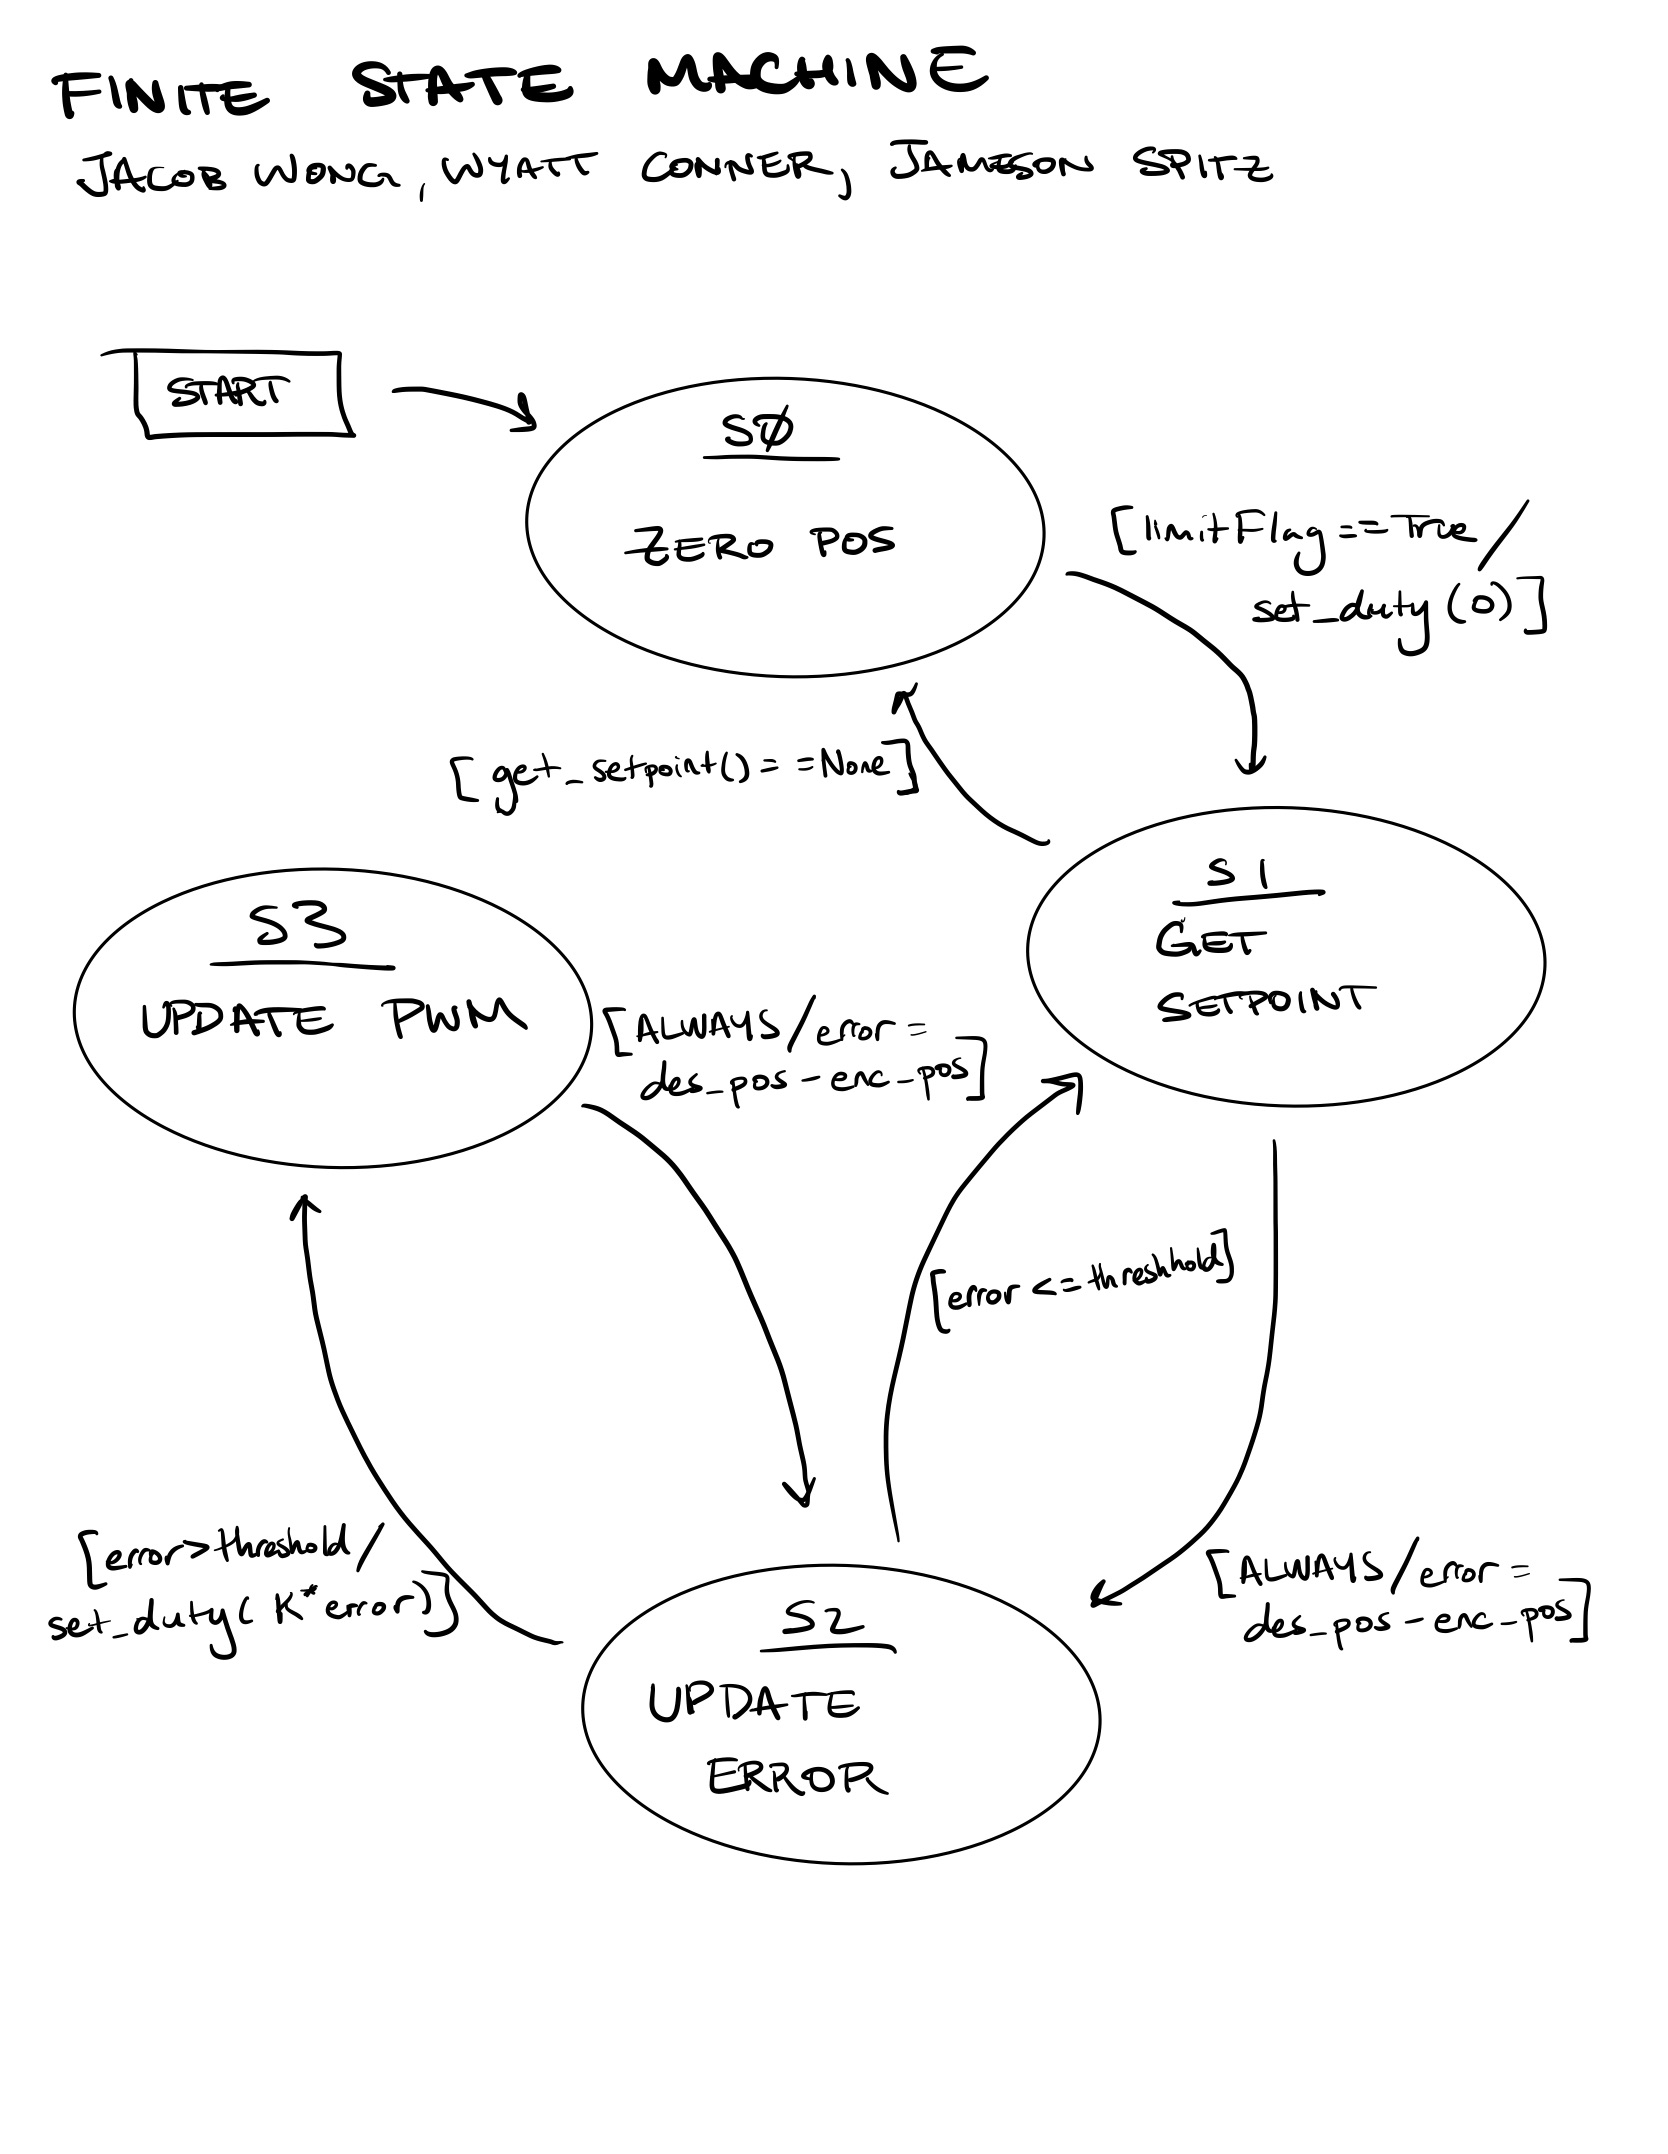 FINITE STATE MACHINE
JACOB WONG, WYATT CONNER, JAMESON SPITZ
START
SØ
ZERO POS
[limitFlag==True/
set_duty(0)]
[get_setpoint()==None]
S1
GET
SETPOINT
S3
UPDATE PWM
[ALWAYS/error=
des_pos-enc_pos]
[error<=threshhold]
[error>threshold/
set_duty(K*error)]
[ALWAYS/error=
des_pos-enc_pos]
S2
UPDATE
ERROR